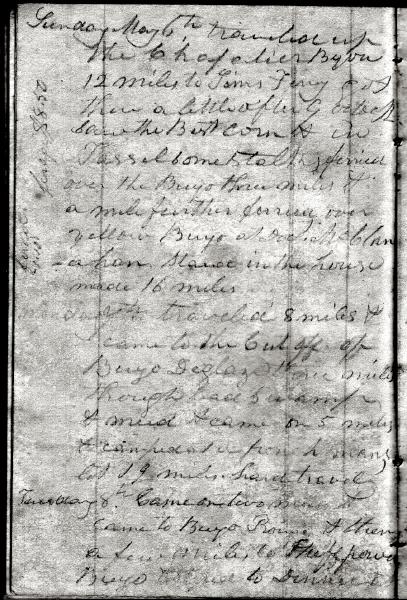 Sunday May 6th traveled up
the Chafalier Byou
12 miles to Sims Fery got
thare a little after 9 oclock
saw the Best corn & in
Tassel some stalks ferried
over the Buyo three miles &
a mile further ferried over
yellow Buyo at
Staid in the house
made 16 miles
traveled 8 miles &
came to the Cut off of
Buyo Deglaze three miles
through bad swamp
& mud & came on 5 miles
& camped at a french mans
19 miles hard travel
Tuesday 8th Came on two miles
came to Buyo Rouge & then
a few miles to
Buyo to Dinner